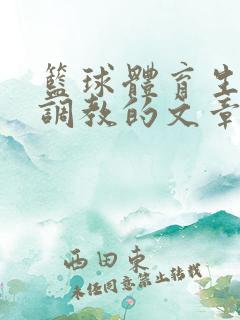 籃球體育生
調教的文章
西田東
未經同意禁止轉載